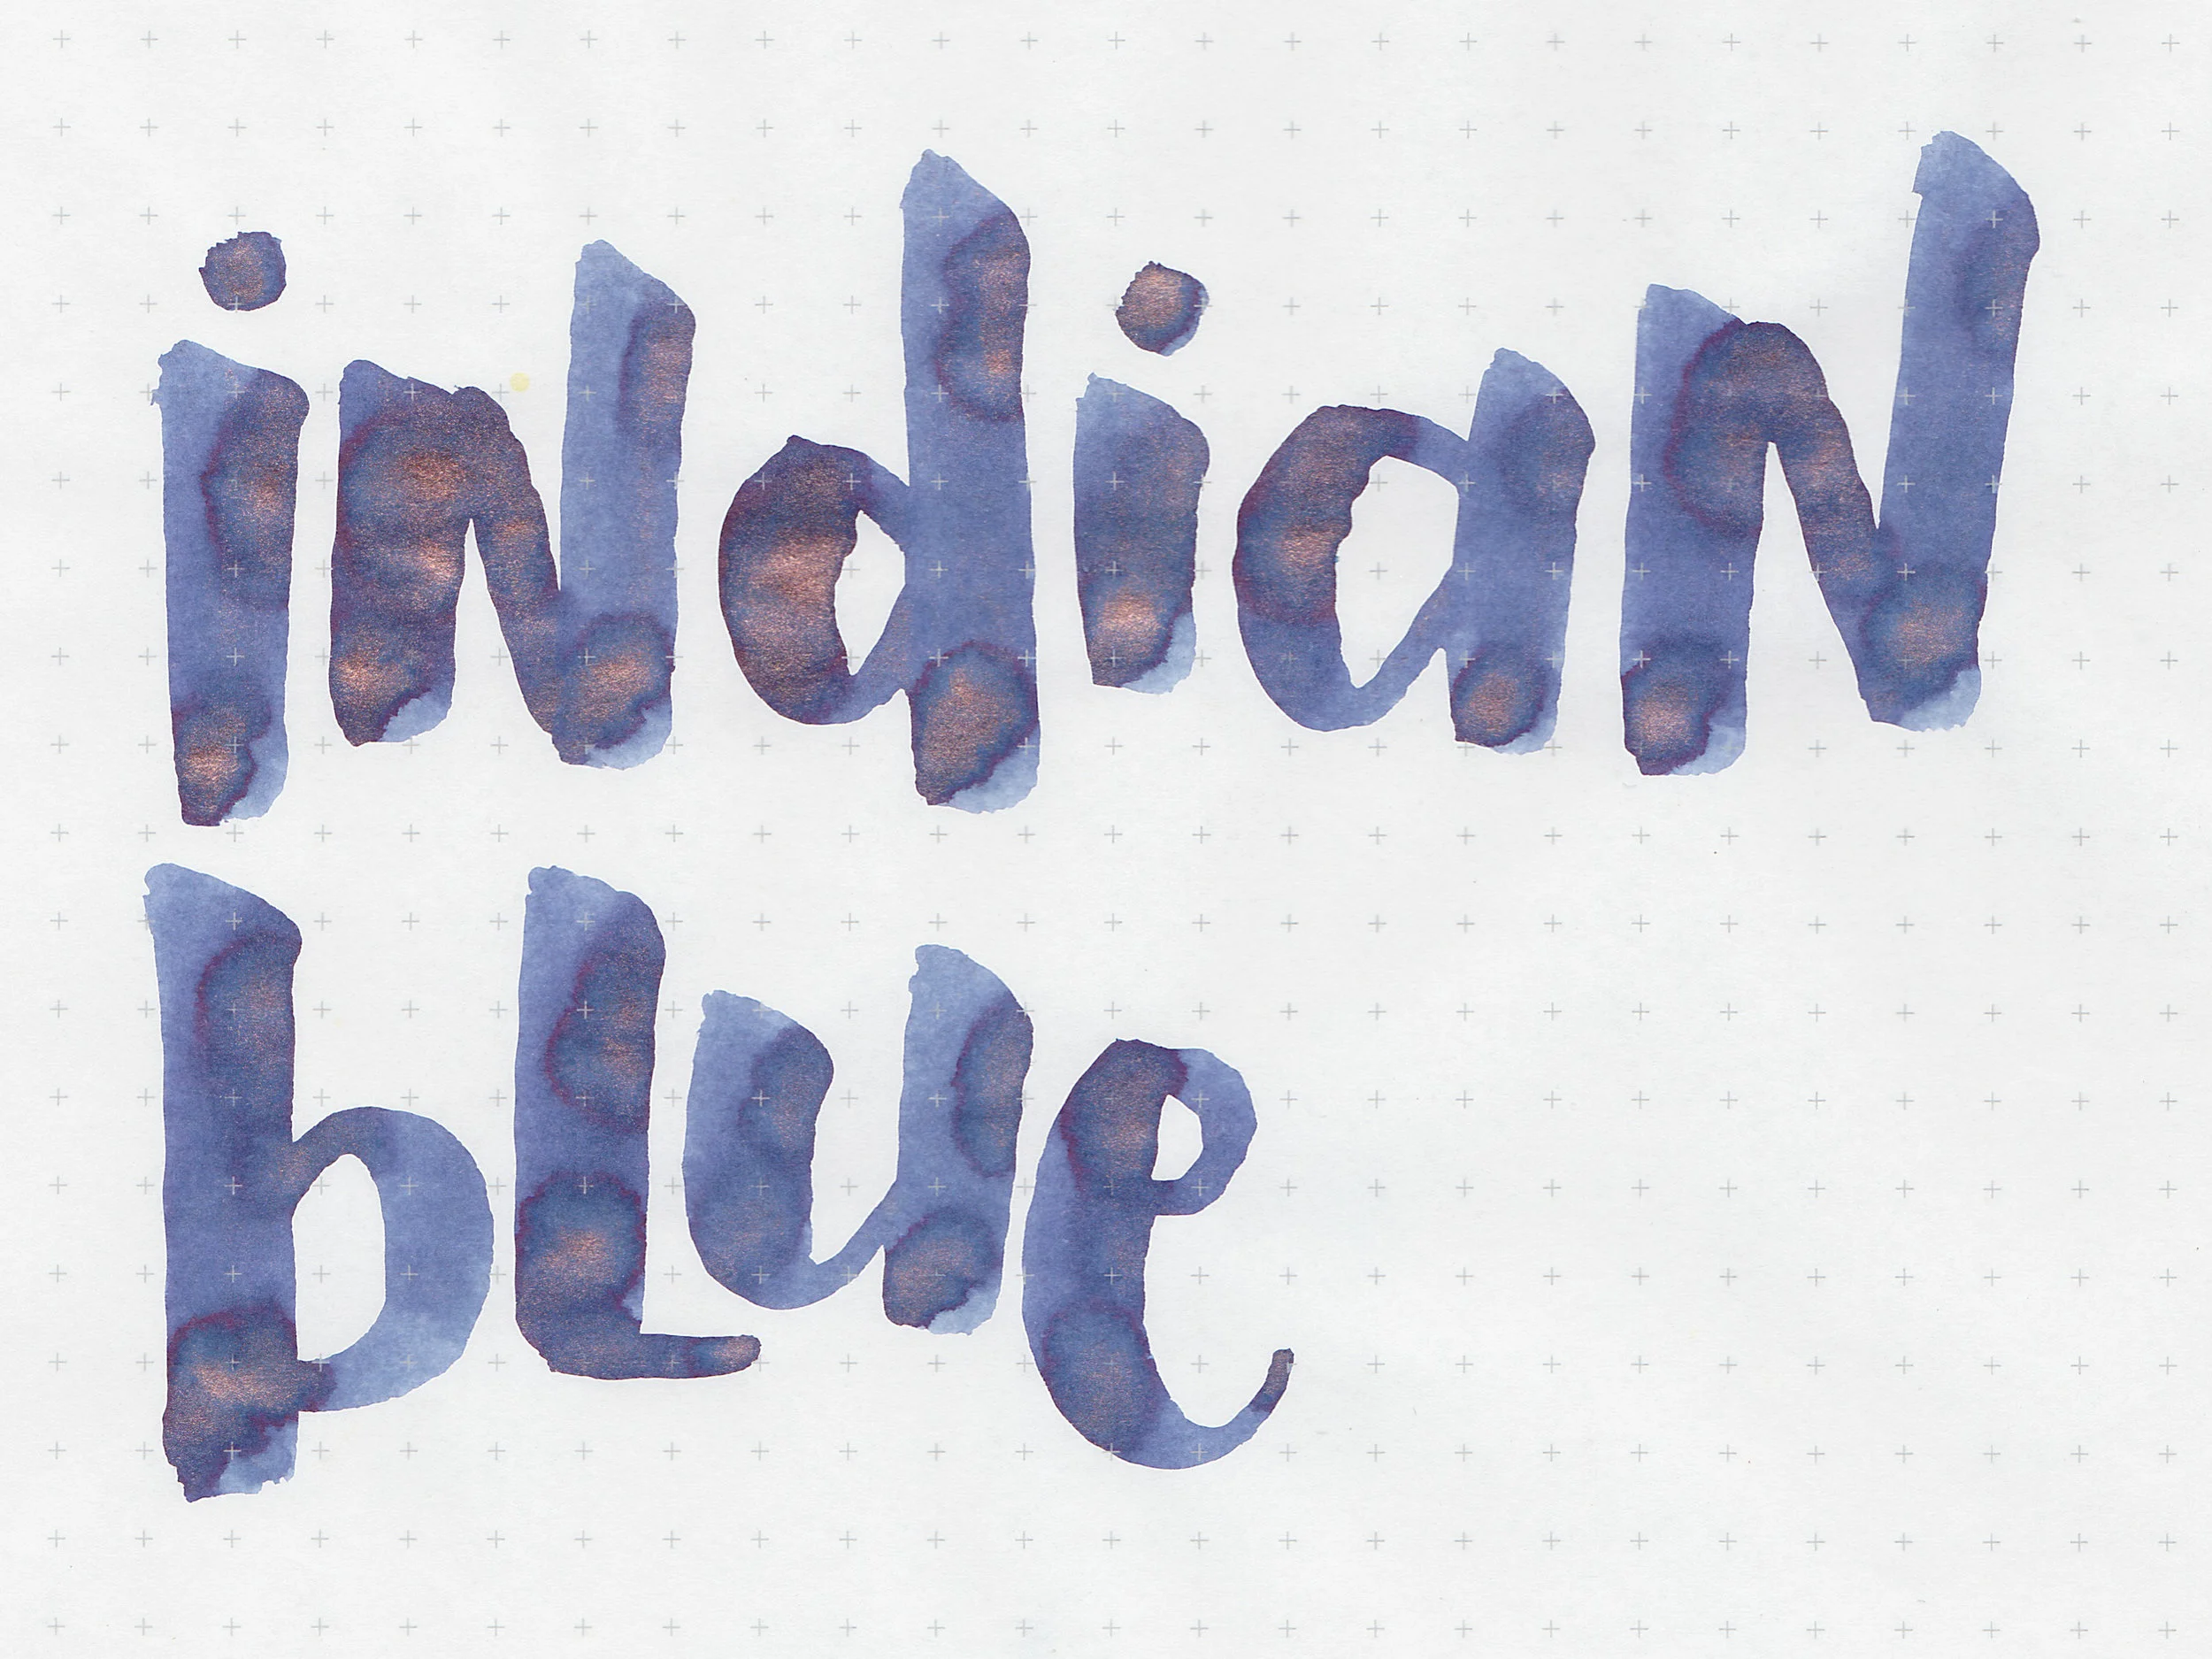 indiaN
bLue